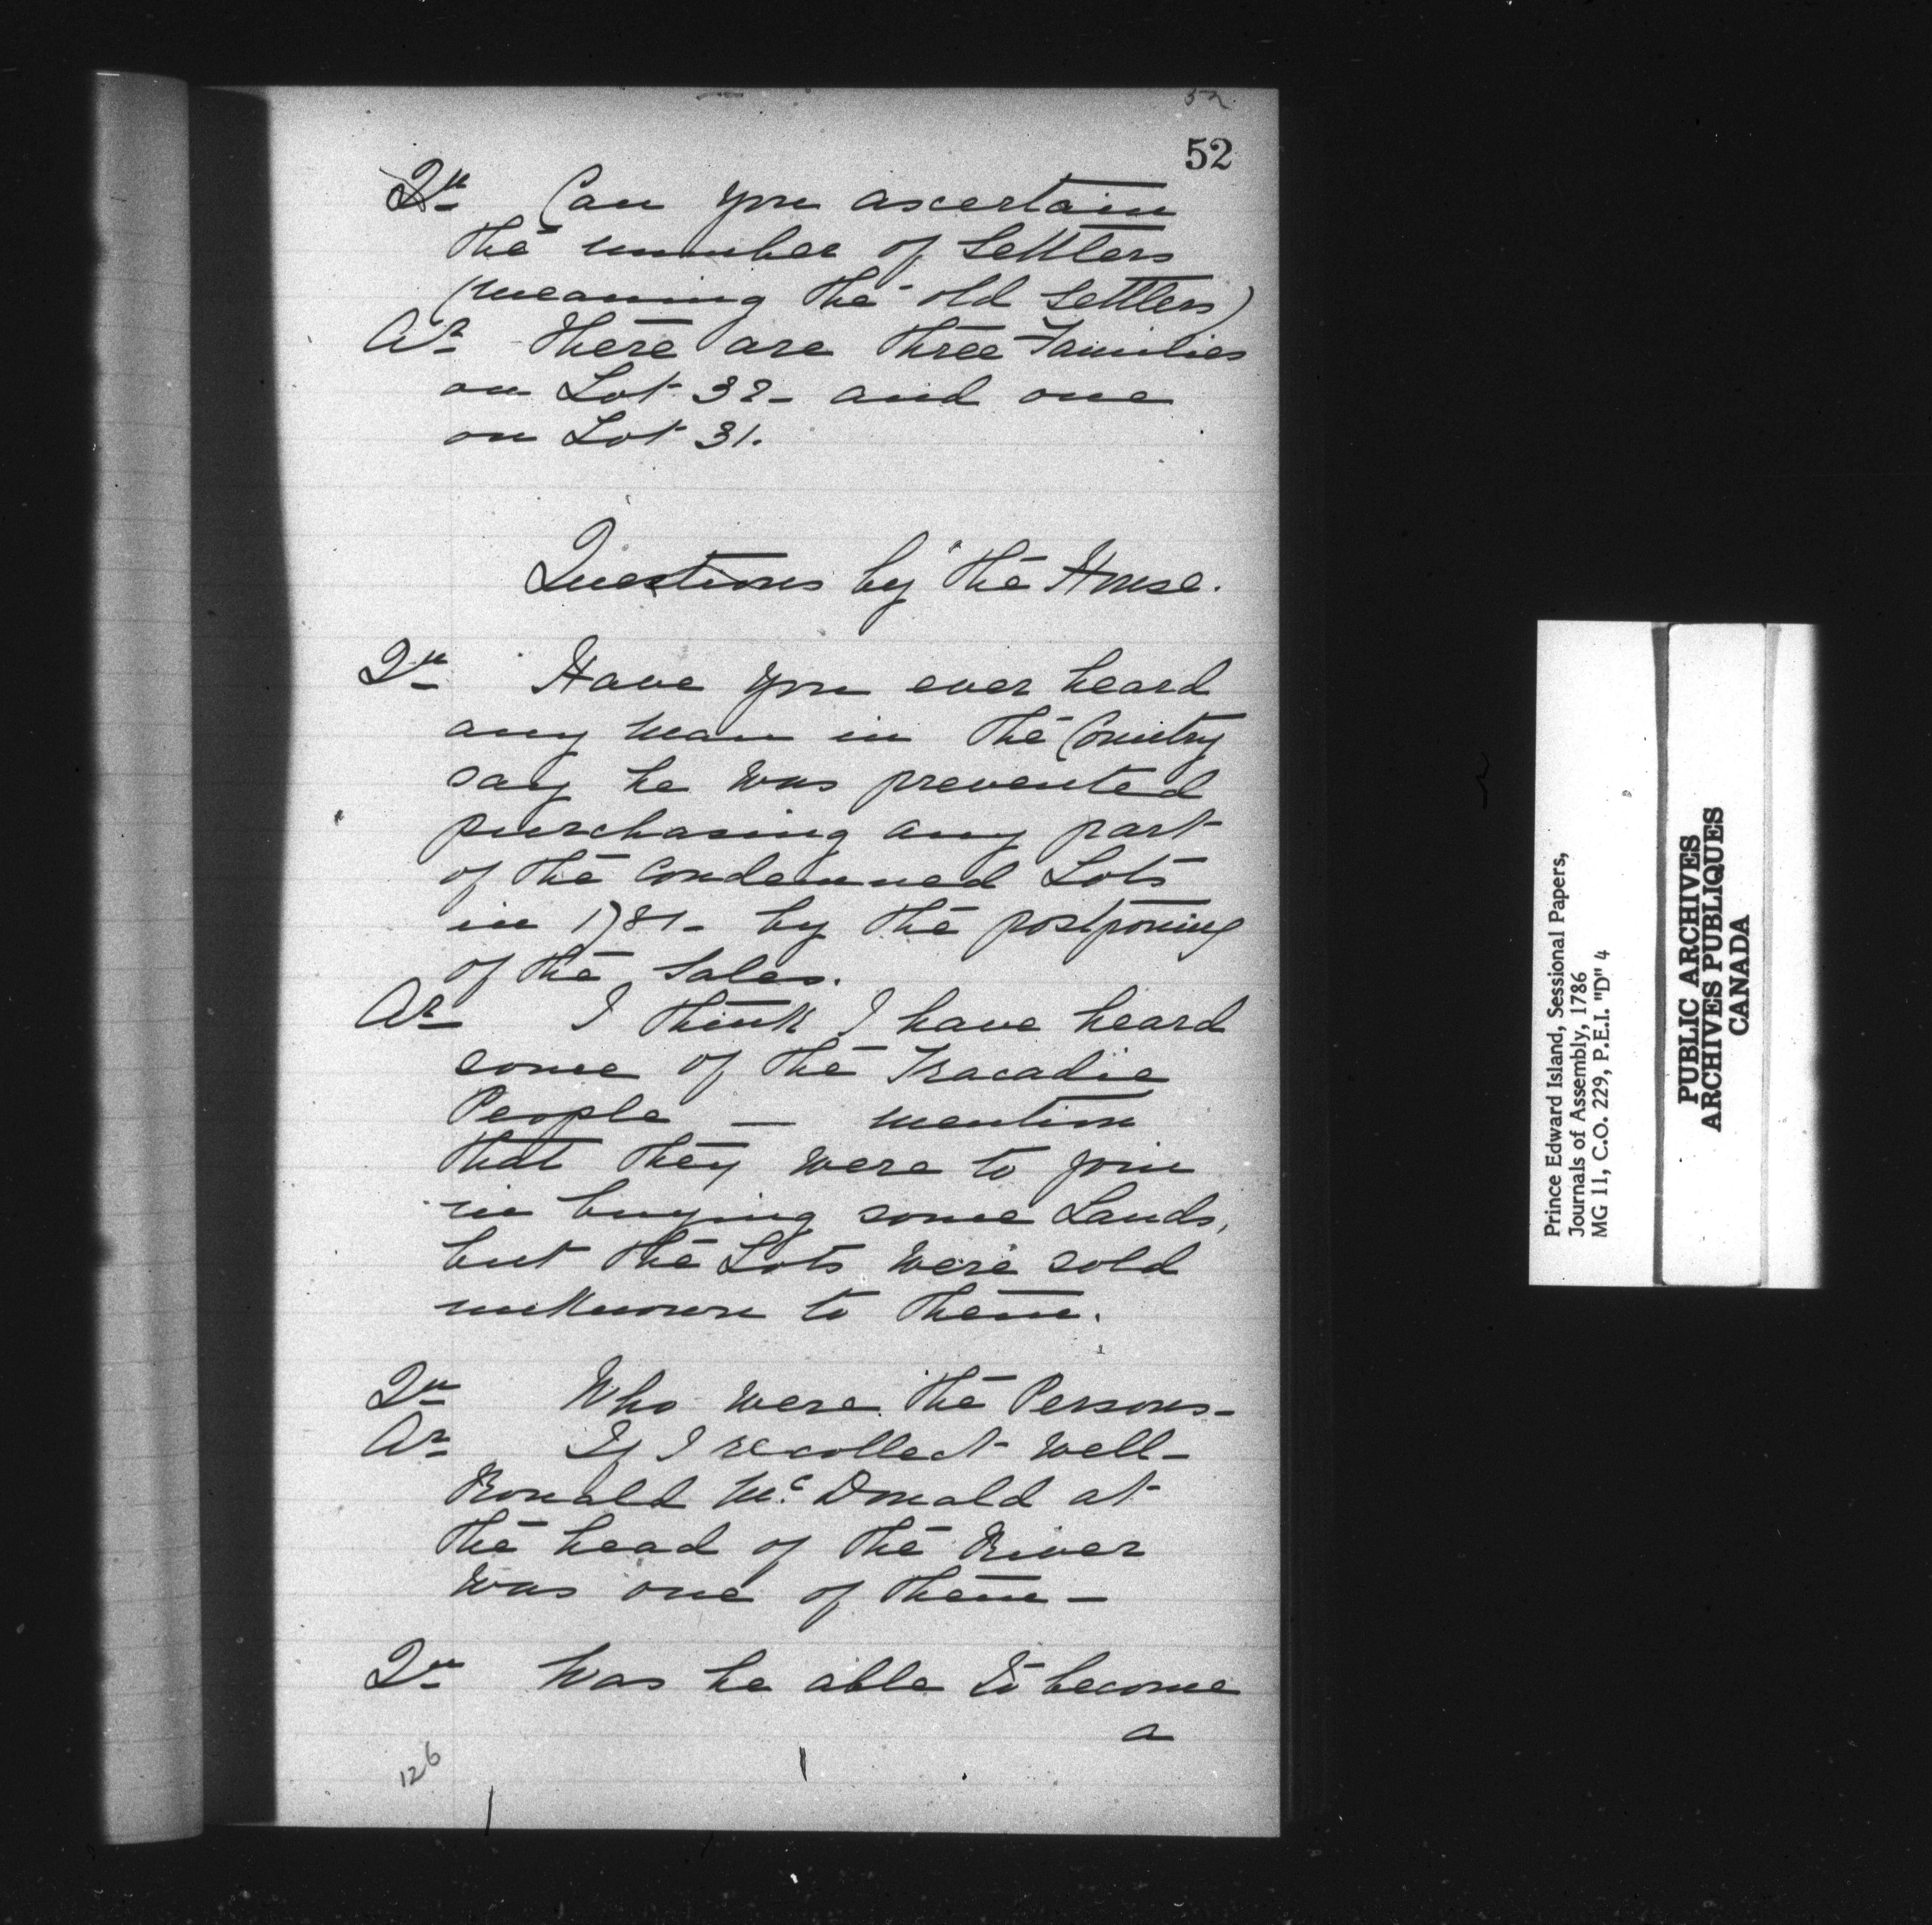 52
52
Qn Can you ascertain
the number of Settlers
(meaning the old Settlers)
Ar There are three Families
on Lot 32 - and one
on Lot 31.
Questions by the House.
Qn Have you ever heard
any man in the Country
say he was prevented
purchasing any part
of the condemned Lots
in 1781 - by the postponing
of the Sales.
Ar I think I have heard
some of the Tracadie
People — mention
that they were to join
in buying some Lands,
but the Lots were sold
unknown to them.
Qn Who were the Persons -
Ar If I recollect well -
Ronald Mc Donald at
the head of the River
was one of them —
Qn Was he able to become
a
126
Prince Edward Island, Sessional Papers,
Journals of Assembly, 1786
MG 11, C.O. 229, P.E.I. "D" 4
PUBLIC ARCHIVES
ARCHIVES PUBLIQUES
CANADA